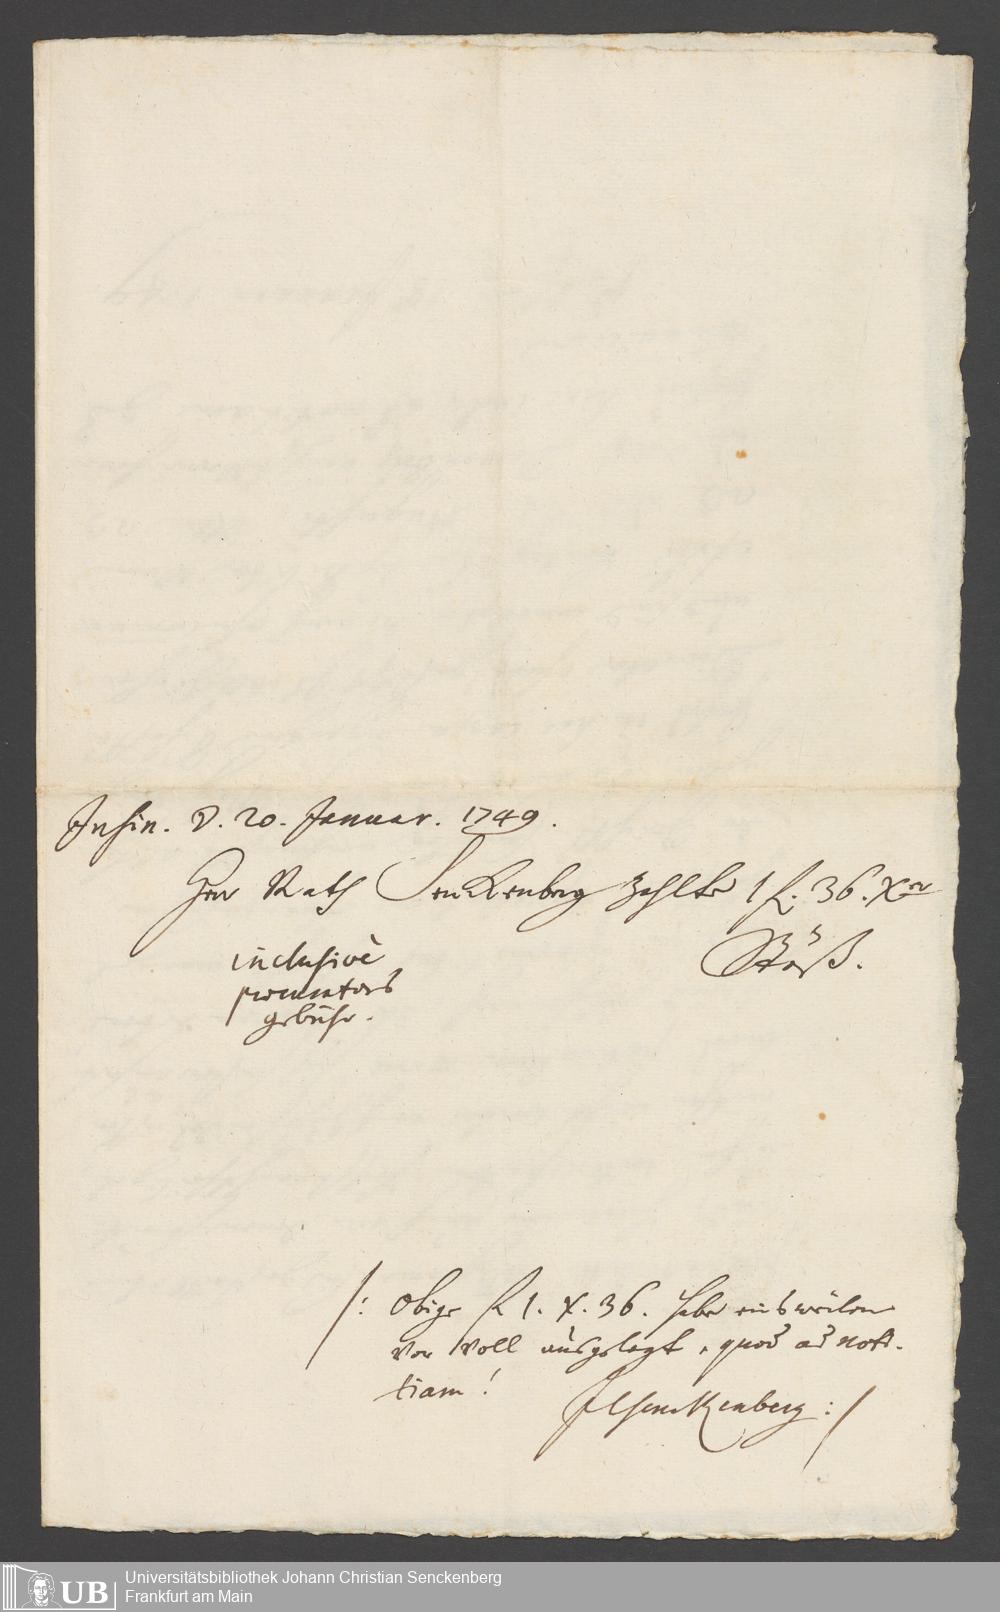 Insin. d. 20. Januar. 1749.
Herr Rath Senckenberg zahlte 1 f. 36. Xer
Stöß.
inclusivè
procurators
gebühr.
/: obige f 1. X. 36. habe einsweilen
vor Voll ausgelegt, quod ad noti-
tiam!
Senckenberg :/
UB
Universitätsbibliothek Johann Christian Senckenberg
Frankfurt am Main